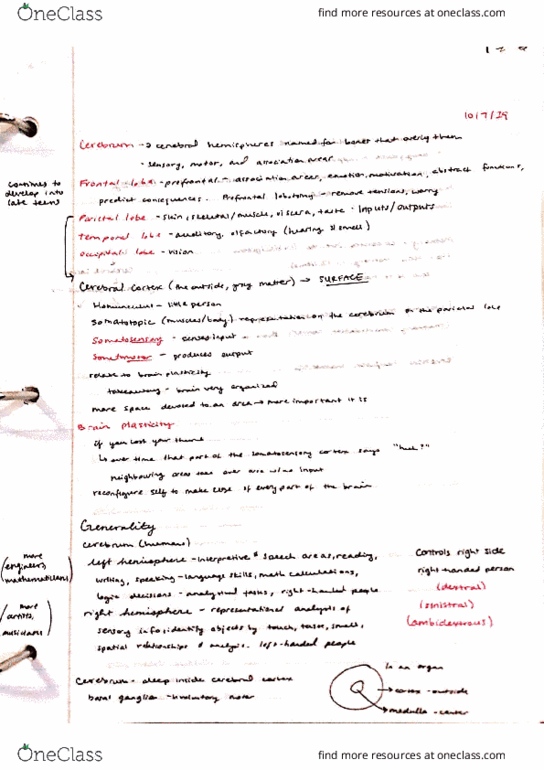 OneClass
find more resources at oneclass.com
10/7/19
Cerebrum → cerebral hemispheres named for bones that overly them
• sensory, motor, and association areas
continues to
develop into
late teens
Frontal lobe - prefrontal - association areas, emotion, motivation, abstract functions,
predict consequences. Prefrontal lobotomy - remove tensions, worry
Parietal lobe - skin, skeletal/muscle, viscera, taste · Inputs/outputs
Temporal lobe - auditory, olfactory (hearing & smell)
Occipital lobe - vision
Cerebral cortex (the outside, gray matter) → SURFACE
Homunculus - little person
Somatotopic (muscles/body) representation on the cerebrum or the parietal lobe
Somatosensory - senses input
Somatomotor - produces output
relate to brain plasticity
takeaway - brain very organized
more space devoted to an area → more important it is
Brain plasticity
if you lost your thumb
↳ over time that part of the somatosensory cortex says "huh?"
neighbouring areas take over area w/ no input
reconfigure self to make use of every part of the brain
Generality
cerebrum (humans)
more
engineers,
mathematicians
left hemisphere - interpretive & speech areas, reading,
writing, speaking - language skills, math calculations,
logic decisions - analytical tasks, right-handed people
Controls right side
right handed person
(dextral)
(sinistral)
(ambidexterous)
more
artists,
musicians
right hemisphere - representational analysis of
sensory info: identify objects by touch, taste, smell,
spatial relationships & analysis. left-handed people
Cerebrum - deep inside cerebral cortex
basal ganglia - involuntary motor
In an organ
→ cortex - outside
→ medulla - center
OneClass
find more resources at oneclass.com